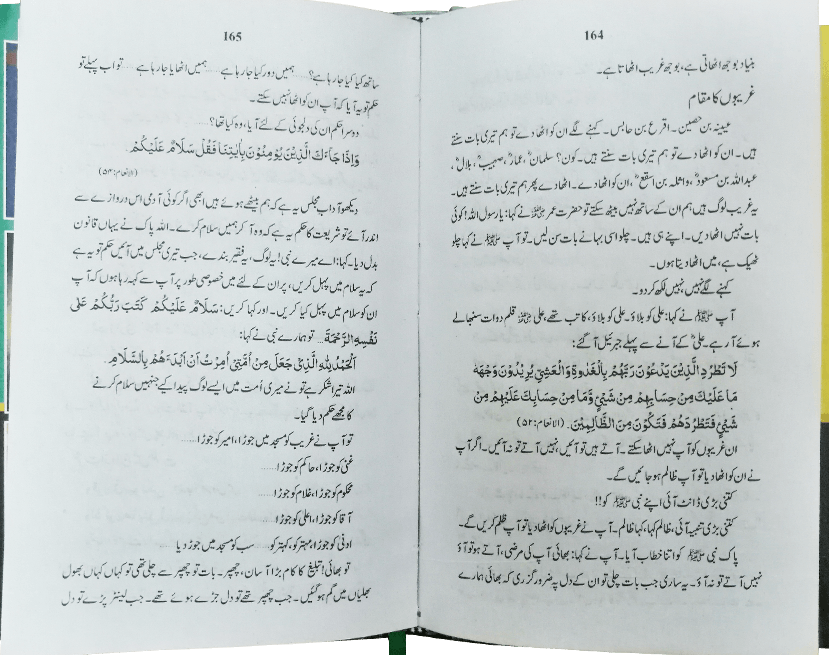 164
بنیاد بوجھ اٹھاتی ہے، بوجھ غریب اٹھاتا ہے۔
غریبوں کا مقام
عیینہ بن حصین۔ اقرع بن حابس۔ کہنے لگے ان کو اٹھا دے تو ہم تیری بات سنتے
ہیں۔ ان کو اٹھا دے تو ہم تیری بات سنتے ہیں۔ کون؟ سلمانؓ، عمارؓ، صہیبؓ، بلالؓ،
عبداللہ بن مسعودؓ، واثلہ بن اسقعؓ، ان کو اٹھا دے۔ اٹھا دے پھر ہم تیری بات سنتے ہیں۔
یہ غریب لوگ ہیں ہم ان کے ساتھ نہیں بیٹھ سکتے تو حضرت عمرؓ نے کہا: یا رسول اللہ! کوئی
بات نہیں اٹھا دیں۔ اپنے ہی ہیں۔ چلو اسی بہانے بات سن لیں۔ تو آپ ﷺ نے کہا چلو
ٹھیک ہے، میں اٹھا دیتا ہوں۔
کہنے لگے نہیں، نہیں لکھ کر دو۔
آپ ﷺ نے کہا: علی کو بلاؤ۔ علی کو بلاؤ، کاتب تھے، علیؓ قلم دوات سنبھالے
ہوئے آ رہے۔ علیؓ کے آنے سے پہلے جبرئیل آ گئے:
لَا تَطْرُدِ الَّذِيْنَ يَدْعُوْنَ رَبَّهُمْ بِالْغَدٰوةِ وَالْعَشِيِّ يُرِيْدُوْنَ وَجْهَهٗ
مَا عَلَيْكَ مِنْ حِسَابِهِمْ مِنْ شَيْئٍ وَّمَا مِنْ حِسَابِكَ عَلَيْهِمْ مِنْ
شَيْئٍ فَتَطْرُدَهُمْ فَتَكُوْنَ مِنَ الظَّالِمِيْنَ۔ (الانعام: ۵۲)
ان غریبوں کو آپ نہیں اٹھا سکتے۔ آتے ہیں تو آئیں، نہیں آتے تو نہ آئیں۔ اگر آپ
نے ان کو اٹھا دیا تو آپ ظالم ہو جائیں گے۔
کتنی بڑی ڈانٹ آئی اپنے نبی ﷺ کو!!
کتنی بڑی تنبیہ آئی، ظالم کہا، کہا ظالم۔ آپ نے غریبوں کو اٹھا دیا تو آپ ظلم کریں گے۔
پاک نبی ﷺ کو اتنا خطاب آیا۔ آپ نے کہا: بھائی آپ کی مرضی، آتے ہو تو آؤ
نہیں آتے تو نہ آؤ۔ یہ ساری جب بات چلی تو ان کے دل پہ ضرور گزری کہ بھائی ہمارے
165
ساتھ کیا کیا جا رہا ہے؟.... ہمیں دور کیا جا رہا ہے.... ہمیں اٹھایا جا رہا ہے.... تو اب پہلے تو
حکم تو یہ آیا کہ آپ ان کو اٹھا نہیں سکتے۔
دوسرا حکم ان کی دلجوئی کے لئے آیا، وہ کیا تھا؟....
وَاِذَا جَآءَكَ الَّذِيْنَ يُؤْمِنُوْنَ بِاٰيٰتِنَا فَقُلْ سَلَامٌ عَلَيْكُمْ۔
(الانعام: ۵۴)
دیکھو آداب مجلس یہ ہے کہ ہم بیٹھے ہوئے ہیں ابھی اگر کوئی آدمی اس دروازے سے
اندر آئے تو شریعت کا حکم یہ ہے کہ وہ آ کر ہمیں سلام کرے۔ اللہ پاک نے یہاں قانون
بدل دیا۔ کہا: اے میرے نبی! یہ لوگ، یہ فقیر بندے، جب تیری مجلس میں آئیں حکم تو یہ ہے
کہ یہ سلام میں پہل کریں، پر ان کے لئے میں خصوصی طور پر آپ سے کہہ رہا ہوں کہ آپ
ان کو سلام میں پہل کیا کریں۔ اور کہا کریں: سَلَامٌ عَلَيْكُمْ كَتَبَ رَبُّكُمْ عَلٰى
نَفْسِهِ الرَّحْمَةَ.... تو ہمارے نبی نے کہا:
اَلْحَمْدُ لِلّٰهِ الَّذِيْ جَعَلَ مِنْ اُمَّتِيْ اُمِرْتُ اَنْ اَبْدَءَهُمْ بِالسَّلَامِ۔
اللہ تیرا شکر ہے تو نے میری اُمت میں ایسے لوگ پیدا کیے جنہیں سلام کرنے
کا مجھے حکم دیا گیا۔
تو آپ نے غریب کو مسجد میں جوڑا، امیر کو جوڑا......
غنی کو جوڑا، حاکم کو جوڑا......
محکوم کو جوڑا، غلام کو جوڑا......
آقا کو جوڑا، اعلیٰ کو جوڑا......
ادنیٰ کو جوڑا، مہتر کو، کہتر کو.... سب کو مسجد میں جوڑ دیا
تو بھائی! تبلیغ کا کام بڑا آسان، چھپر۔ بات تو چھپر سے چلی تھی تو کہاں کہاں بھول
بھلیاں میں گم ہو گئیں۔ جب چھپر تھے تو دل جڑے ہوئے تھے۔ جب لینٹر پڑے تو دل